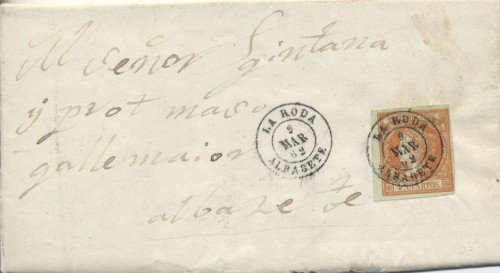 M señor Sintana
y prot maso
galle maior
albaze te
LA RODA
9
MAR
62
ALBACETE
LA RODA
9
MAR
62
ALBACETE
CUARTOS